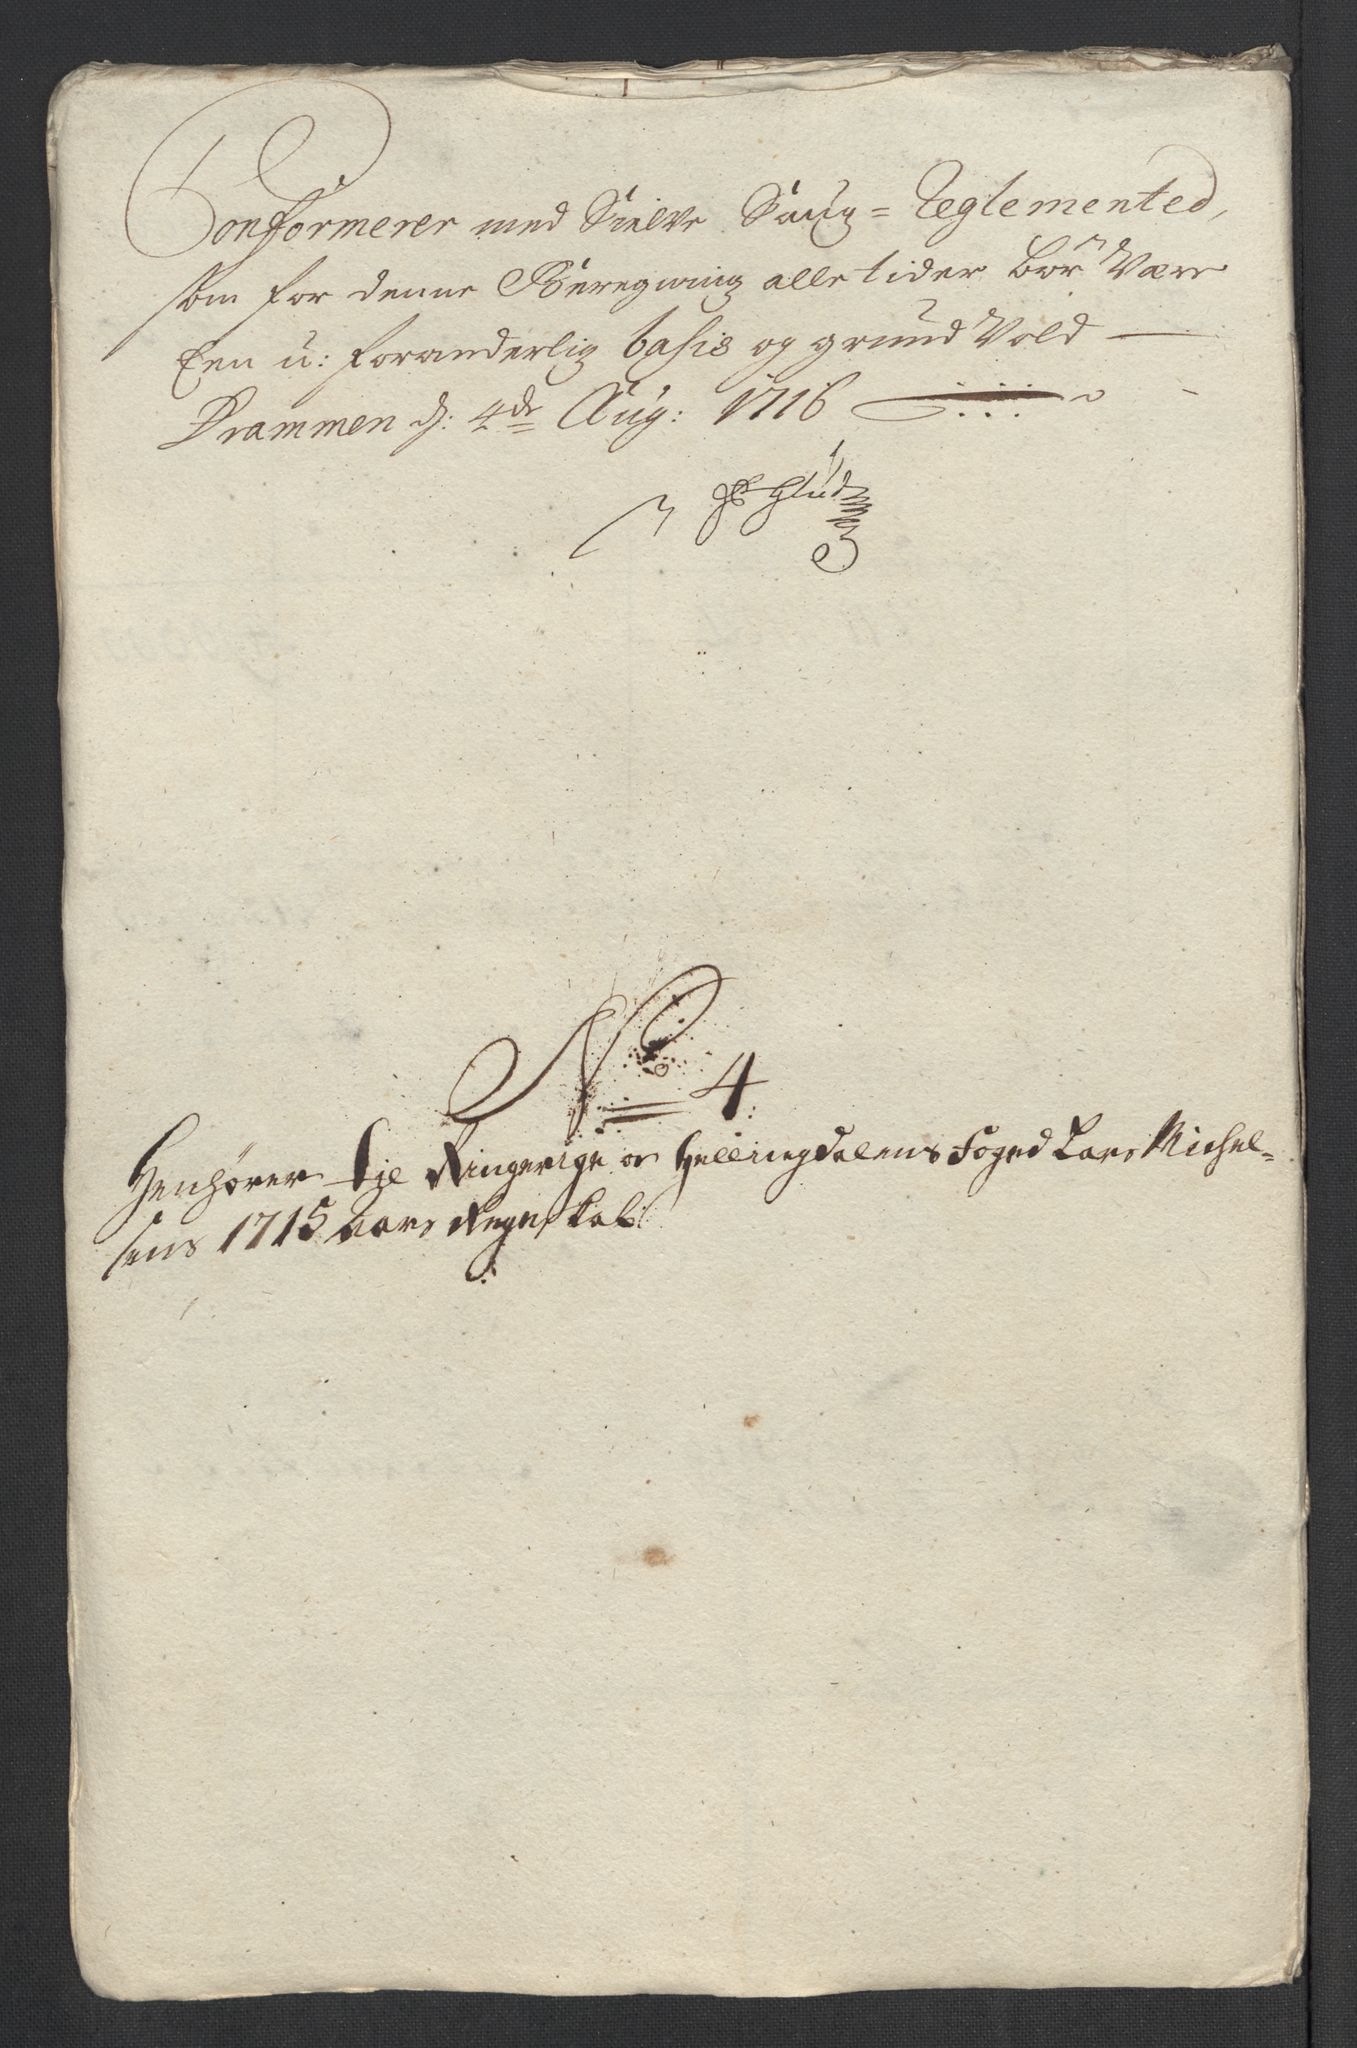 Conformerer med Sielve Saug = Reglemented,
som for denne Beregning alletider bör Være
Een u: foranderlig basis og grund Vold
Drammen d: 4de Aug: 1716
Glud
No 4
Henhörer til Ringerige og Hallingdalens Foged Lars Michel=
sens 1715 Aars Regnskab